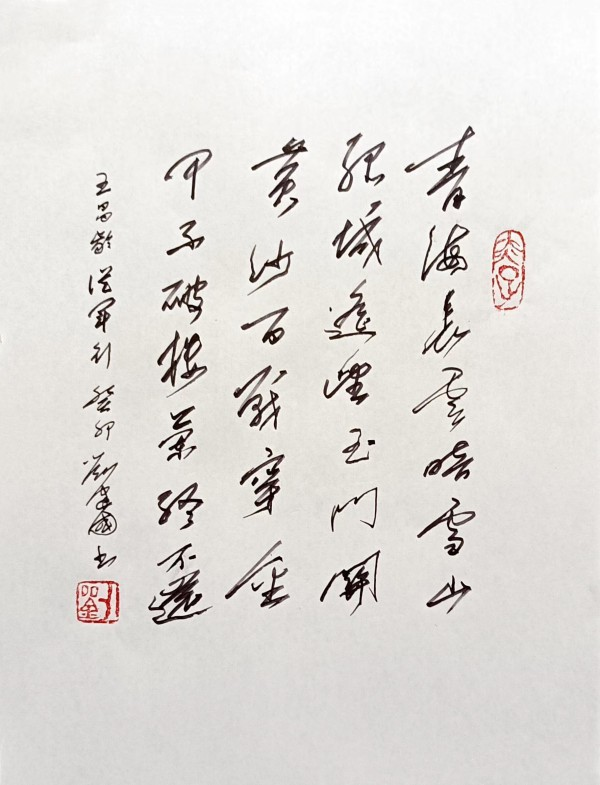 青海長雲暗雪山
孤城遙望玉門關
黃沙百戰穿金
甲不破樓蘭終不還
王昌齡從軍行癸卯劉建國书
劉